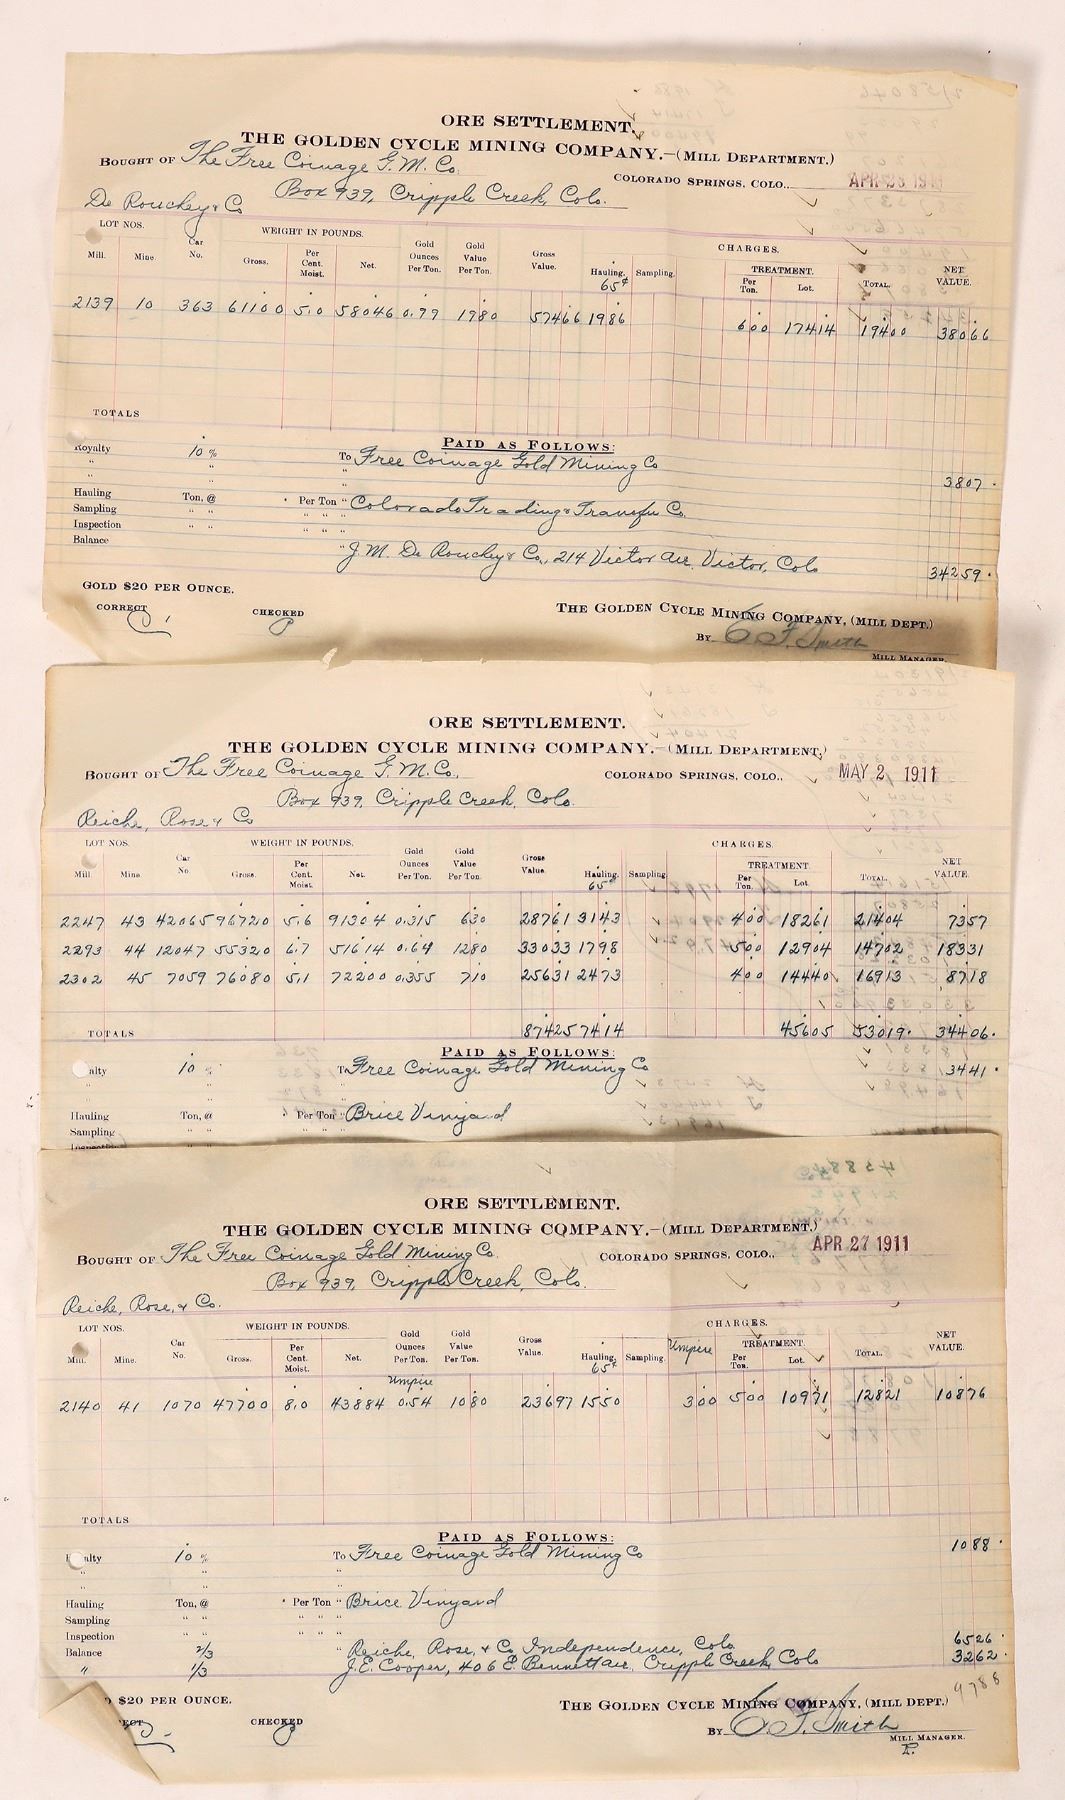 ORE SETTLEMENT.
THE GOLDEN CYCLE MINING COMPANY.—(MILL DEPARTMENT.)
BOUGHT OF The Free Coinage G. M. Co. COLORADO SPRINGS, COLO., APR 28 1911
Box 939, Cripple Creek, Colo.
De Rouchey & Co
LOT NOS. WEIGHT IN POUNDS. CHARGES.
Mill. Mine. Car No. Gross. Per Cent. Moist. Net. Gold Ounces Per Ton. Gold Value Per Ton. Gross Value. Hauling. 65¢ Sampling. TREATMENT. Per Ton. Lot. TOTAL. NET VALUE.
2139 10 363 61100 5.0 58046 0.99 1980 57466 1986 600 17414 19400 38066
TOTALS
PAID AS FOLLOWS:
Royalty 10 % To Free Coinage Gold Mining Co 3807.
" " "
" "
Hauling Ton, @ Per Ton " Colorado Trading & Transfer Co.
Sampling " " " "
Inspection " " " "
Balance " J. M. De Rouchey & Co., 214 Victor Ave, Victor, Colo 34259.
GOLD $20 PER OUNCE.
CORRECT CHECKED THE GOLDEN CYCLE MINING COMPANY, (MILL DEPT.)
BY E. F. Smith
MILL MANAGER.
ORE SETTLEMENT.
THE GOLDEN CYCLE MINING COMPANY.—(MILL DEPARTMENT.)
BOUGHT OF The Free Coinage G. M. Co. COLORADO SPRINGS, COLO., MAY 2 1911
Box 939, Cripple Creek, Colo.
Reiche, Rose & Co
LOT NOS. WEIGHT IN POUNDS. CHARGES.
Mill. Mine. Car No. Gross. Per Cent. Moist. Net. Gold Ounces Per Ton. Gold Value Per Ton. Gross Value. Hauling. 65¢ Sampling. TREATMENT. Per Ton. Lot. TOTAL. NET VALUE.
2247 43 42065 96720 5.6 91304 0.315 630 28761 3143 400 18261 21404 7357
2293 44 12047 55320 6.7 51614 0.64 1280 33033 1798 500 12904 14702 18331
2302 45 7059 76080 5.1 72200 0.355 710 25631 2473 400 14440 16913 8718
TOTALS 87425 7414 45605 53019. 34406.
PAID AS FOLLOWS:
alty 10 % To Free Coinage Gold Mining Co 3441.
" " "
Hauling Ton, @ Per Ton " Brice Vinyard
Sampling " " " "
ORE SETTLEMENT.
THE GOLDEN CYCLE MINING COMPANY.—(MILL DEPARTMENT.)
BOUGHT OF The Free Coinage Gold Mining Co. COLORADO SPRINGS, COLO., APR 27 1911
Box 939, Cripple Creek, Colo.
Reiche, Rose, & Co.
LOT NOS. WEIGHT IN POUNDS. CHARGES.
Mill. Mine. Car No. Gross. Per Cent. Moist. Net. Gold Ounces Per Ton. Gold Value Per Ton. Gross Value. Hauling. 65¢ Sampling. Umpire TREATMENT. Per Ton. Lot. TOTAL. NET VALUE.
Umpire
2140 41 1070 47700 8.0 43884 0.54 1080 23697 1550 300 500 10971 12821 10876
TOTALS
PAID AS FOLLOWS:
alty 10 % To Free Coinage Gold Mining Co 1088.
" " "
" "
Hauling Ton, @ Per Ton " Brice Vinyard
Sampling " " " "
Inspection " " " "
Balance 2/3 " Reiche, Rose, & Co, Independence, Colo 6526.
" 1/3 J. E. Cooper, 406 E. Bennett ave, Cripple Creek, Colo 3262.
9788
$20 PER OUNCE. THE GOLDEN CYCLE MINING COMPANY, (MILL DEPT.)
ECT CHECKED BY E. F. Smith
MILL MANAGER.